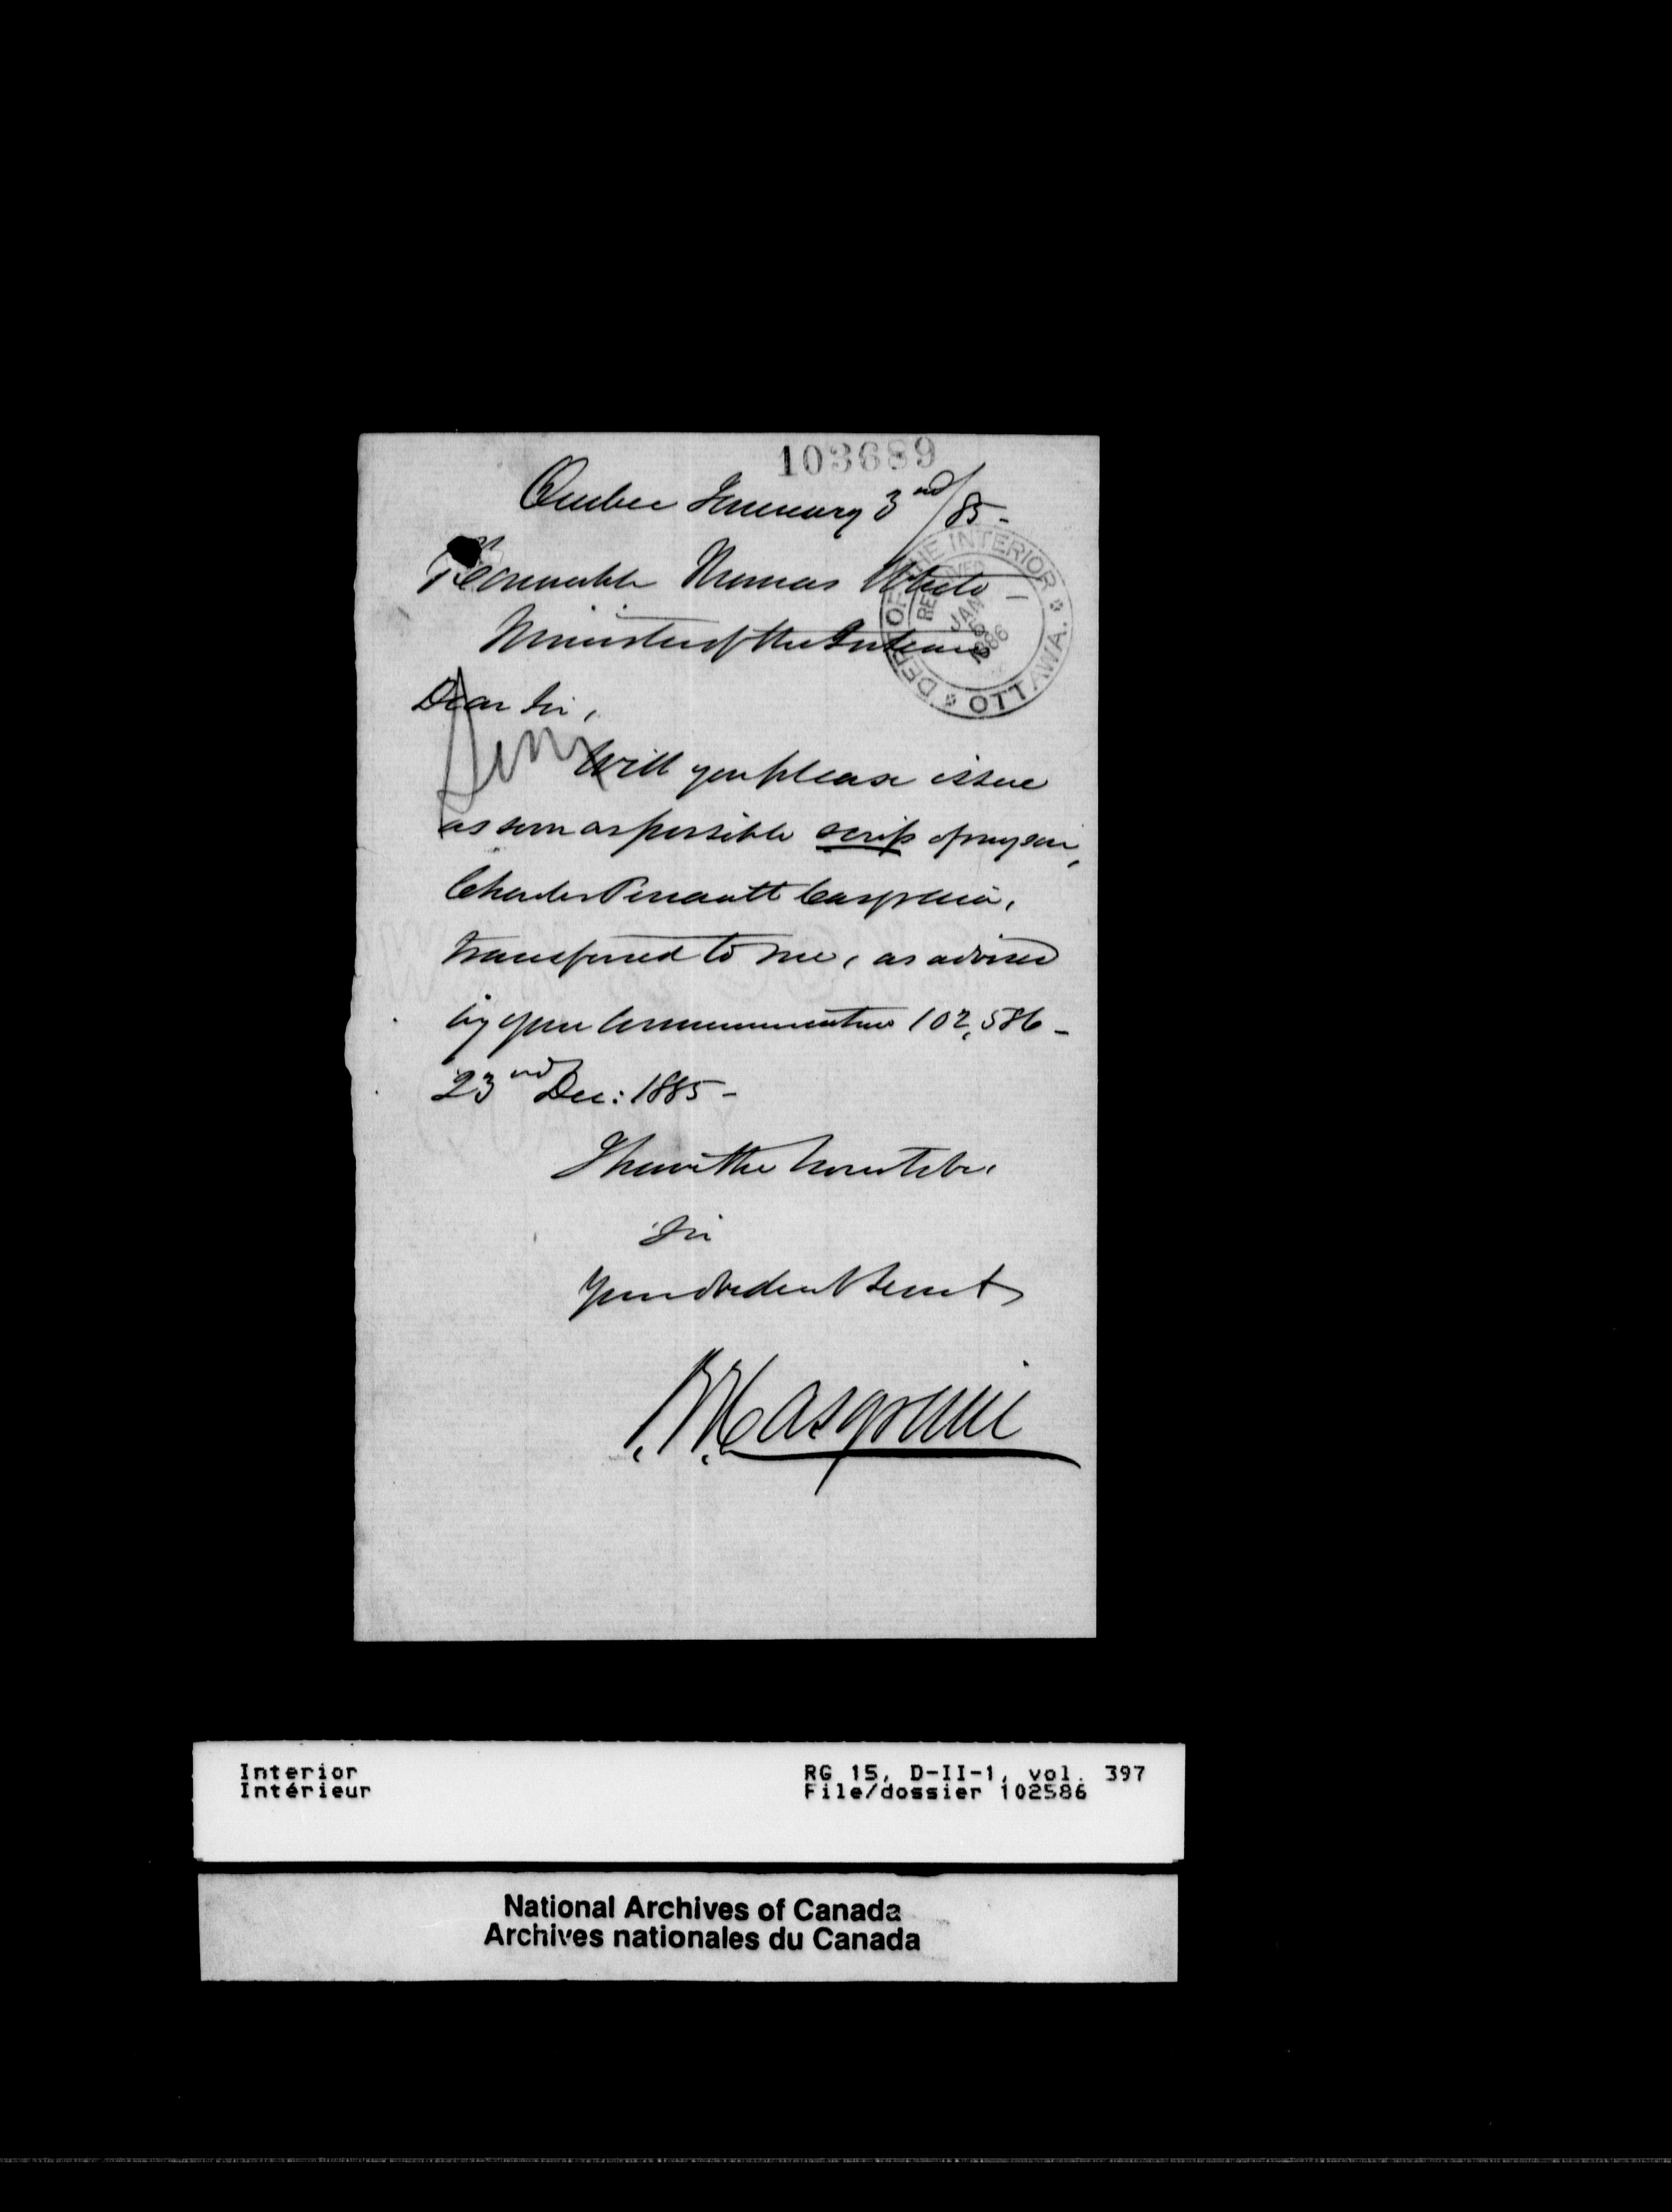 103689
Quebec January 3nd/85 -
Honorable Thomas White -
Minister of the Interior
DEPT OF THE INTERIOR * OTTAWA. *
RECEIVED
JAN
1886
Dear Sir,
Will you please issue
as soon as possible scrip of my son,
Charles Perrault Casgrain,
transferred to me, as advised
by your communication 102,586 -
23nd Dec: 1885 -
I have the honor to be,
Sir
Your obedient Servt
Casgrain
Interior
Intérieur
RG 15, D-II-1, vol. 397
File/dossier 102586
National Archives of Canada
Archives nationales du Canada